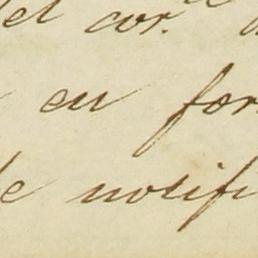 del cor.te
en for
de notifi